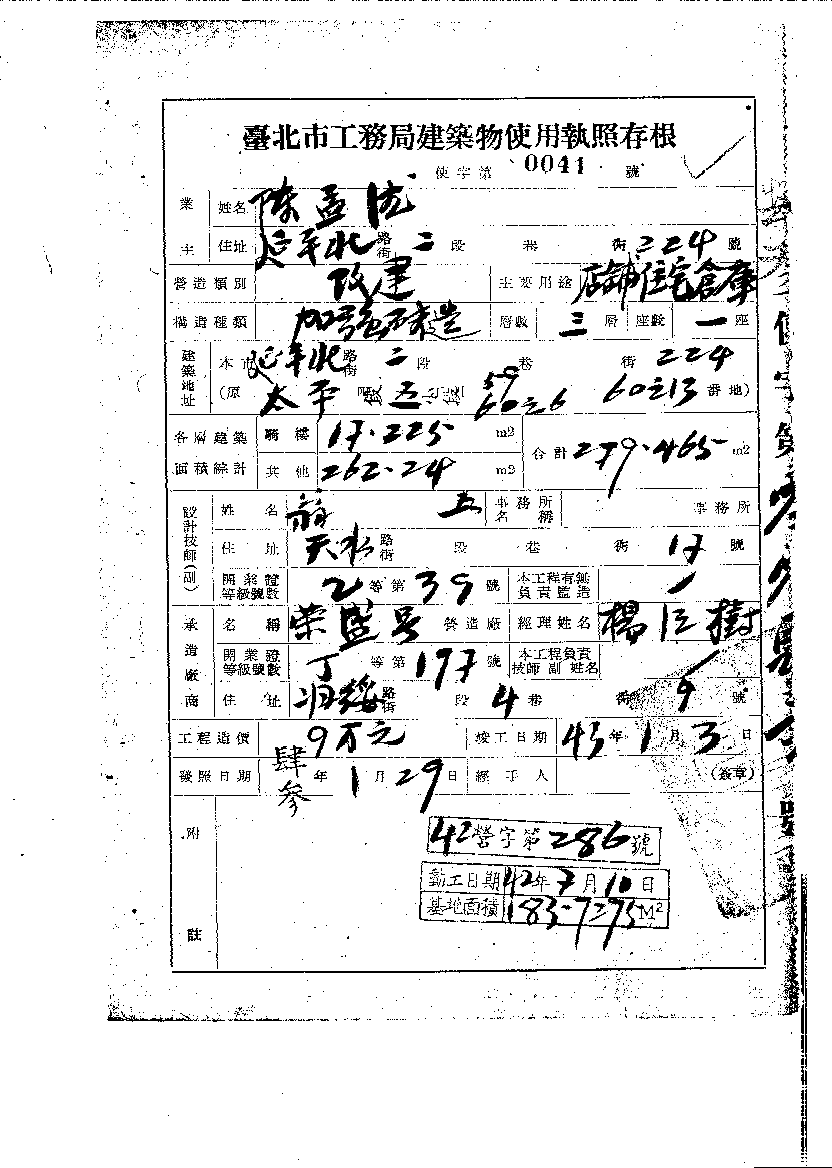 臺北市工務局建築物使用執照存根
使字第 0041 號
業主 姓名 陈孟
住址 延平北路街 二 段 巷 街 224 號
營造類別 改建 主要用途 店舖住宅倉庫
構造種類 加強磚造 層數 三 層 座數 一 座
建築地址 本市 延平北路街 二 段 巷 街 224
(原 太平 五 59 60之6 60之13 番地)
各層建築面積綜計 騎樓 17.225 m2 合計 279.465 m2
其他 262.24 m2
設計技師(副) 姓名 翁 五 事務所名稱 事務所
住址 天水路街 段 巷 街 17 號
開業證等級號數 乙 等第 39 號 本工程有無負責監造
承造廠商 名稱 荣盛号 營造廠 經理姓名 楊 樹
開業證等級號數 丁 等第 197 號 本工程負責技師副姓名
住址 归綏路街 段 4 巷 街 9 號
工程造價 9万元 竣工日期 43 年 1 月 3 日
發照日期 肆参 年 1 月 29 日 經手人 (簽章)
附註
42營字第286號
動工日期 42年7月10日
基地面積 183.7275M²